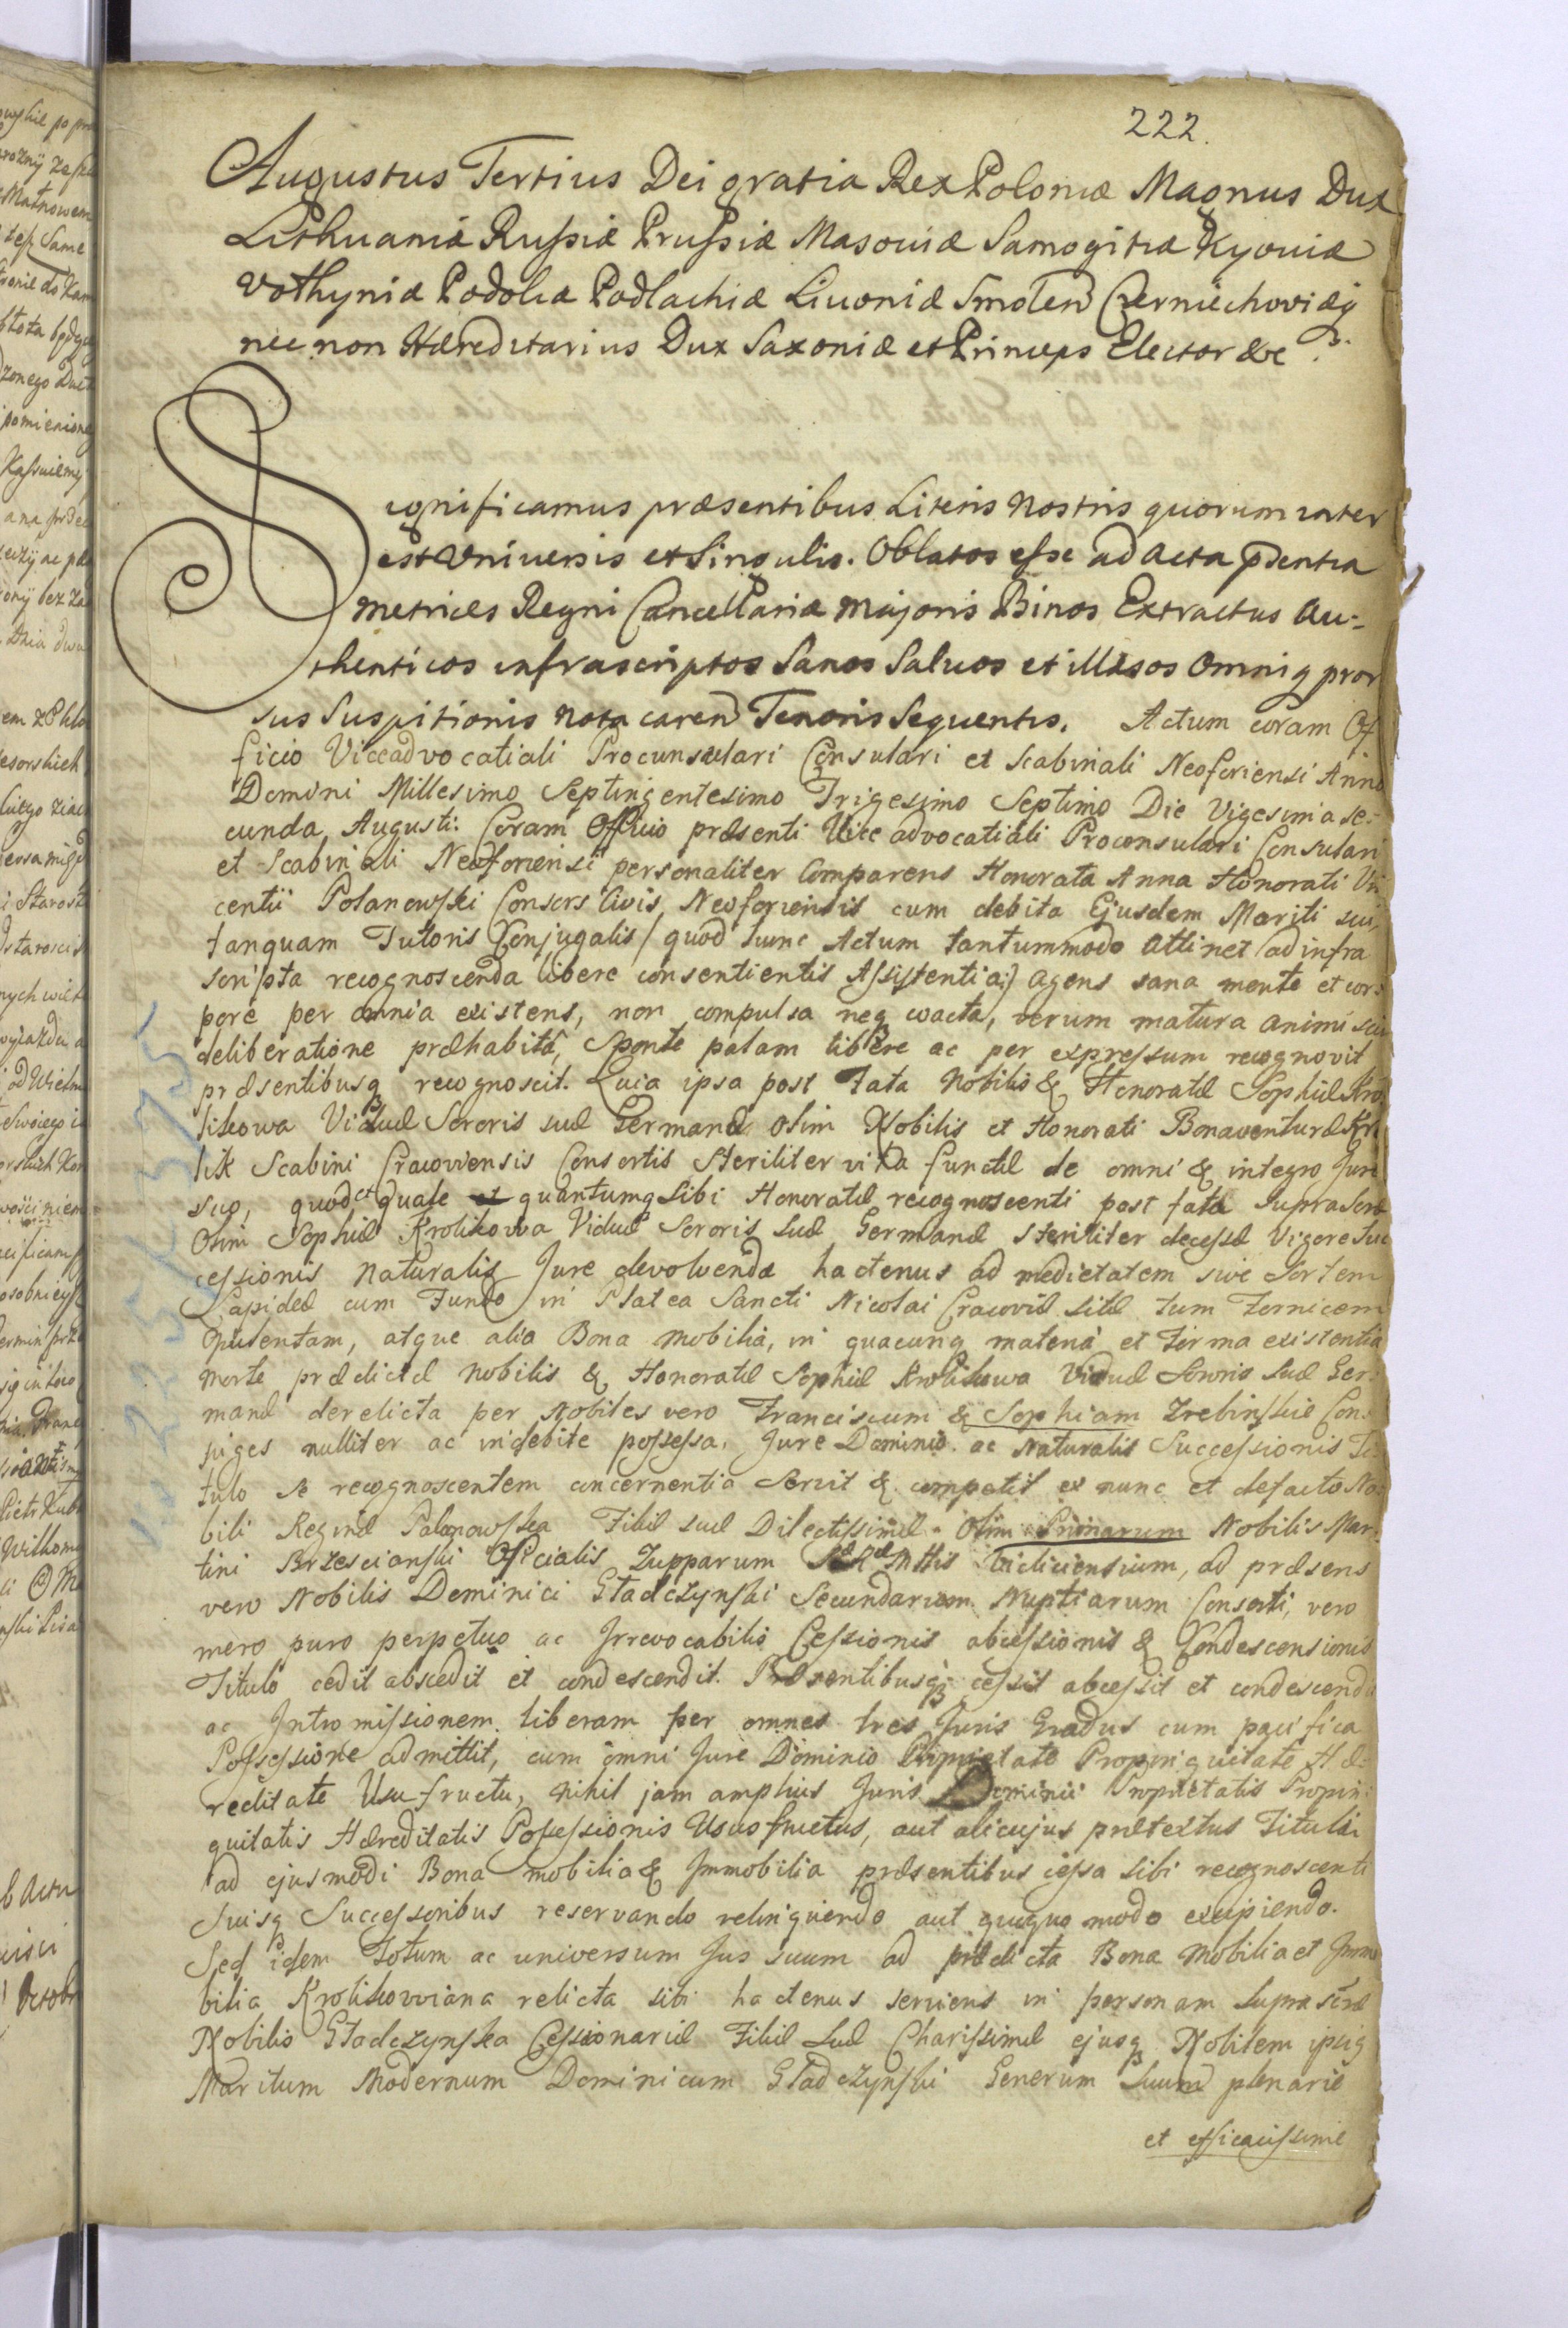 222.
Augustus Tertius Dei gratia Rex Poloniæ Magnus Dux
Lithuaniæ Russiæ Prussiæ Masoviæ Samogitiæ Kyoviæ
Volhyniæ Podoliæ Podlachiæ Livoniæ Smolen Czerniechoviæq
nec non Hæreditarius Dux Saxoniæ et Princeps Elector &c
Significamus præsentibus Literis Nostris quorum inter
est Universis et Singulis. Oblatos esse ad Acta præsentia
Metrices Regni Cancellariæ Majoris Binos Extractus Au-
thenticos infrascriptos Sanos Salvos et illæsos Omniq pror
sus Suspitionis Nota caren Tenoris Sequentis. Actum coram Of
ficio Viceadvocatiali Proconsulari Consulari et Scabinali Neoforiensi Anno
Domini Millesimo Septingentesimo Trigesimo Septimo Die Vigesima se-
cunda Augusti. Coram Officio præsenti Vice advocatiali Proconsulari Consulari
et Scabinali Neoforiensi personaliter Comparens Honorata Anna Honorati Vin
centii Polanowski Consors Civis Neoforiensis cum debita Ejusdem Mariti sui,
tanquam Tutoris Conjugalis/ quod hunc Actum tantummodo attinet /ad infra
scripta recognoscenda libere consentientis Assistentia:/ agens sana mente et cor-
pore per omnia existens, non compulsa neq coacta, verum matura animi sui
deliberatione præhabitâ, Sponte palam libere ac per expressum recognovit
præsentibusq recognoscit. Quia ipsa post Fata Nobilis & Honoratæ Sophiæ Kro
likowa Viduæ Sororis suæ Germanæ olim Nobilis et Honorati Bonaventuræ Kro
lik Scabini Cracoviensis Consortis Steriliter vita functæ de omni & integro Jure
suo, quod et quale et quantumq sibi Honoratæ recognoscenti post fata Suprascræ
Olim Sophiæ Krolikowa Viduæ Sororis suæ Germanæ steriliter decessæ Vigore Suc
cessionis Naturalis Jure devolvenda hactenus ad medietatem sive Sortem
Lapideæ cum Fundo in Platea Sancti Nicolai Cracoviæ sitæ tum Fornicem
Opulentam, atque alia Bona Mobilia, in quacunq materia et Forma existentia
Morte prædictæ Nobilis & Honoratæ Sophiæ Krolikowa Viduæ Sororis suæ Ger-
manæ derelicta per Nobiles vero Franciscum & Sophiam Trebinskie Con-
juges nulliter ac indebite possessa, Jure Dominio ac Naturalis Successionis Ti-
tulo se recognoscentem concernentia Servit & competit ex nunc et defacto No-
bili Reginæ Polanowska Filiæ suæ Dilectissimæ Olim Primarum Nobilis Mar-
tini Brzescianski Officialis Zupparum Mttis Vieliciensium, ad præsens
vero Nobilis Dominici Gładczynski Secundarum Nuptiarum Consorti, vero
mero puro perpetuo ac Irrevocabilis Cessionis abcessionis & Condescensionis
Titulo cedit abscedit et condescendit. Præsentibusq cessit abcessit et condescendit
ac Intromissionem liberam per omnes tres Juris Gradus cum pacifica
Possessione admittit, cum omni Jure Dominio Proprietate Propinquitate Hæ-
reditate Usufructu, nihil jam amplius Juris Dominii Proprietatis Propin-
quitatis Hæreditatis Possessionis Ususfructus, aut alicujus prætextus Tituli
ad ejusmodi Bona mobilia & Immobilia præsentibus cessa sibi recognoscenti
Suisq Successoribus reservando relinquendo aut quoquo modo excipiendo.
Sed idem Totum ac universum Jus suum ad prædicta Bona Mobilia et Immo
bilia Krolikowiana relicta sibi hactenus serviens in personam Suprascræ
Nobilis Gładczynska Cessionariæ Filiæ Suæ Charissimæ ejusq Nobilem ipsius
Maritum Modernum Dominicum Gładczynski Generum Suum plenarie
et efficacissime